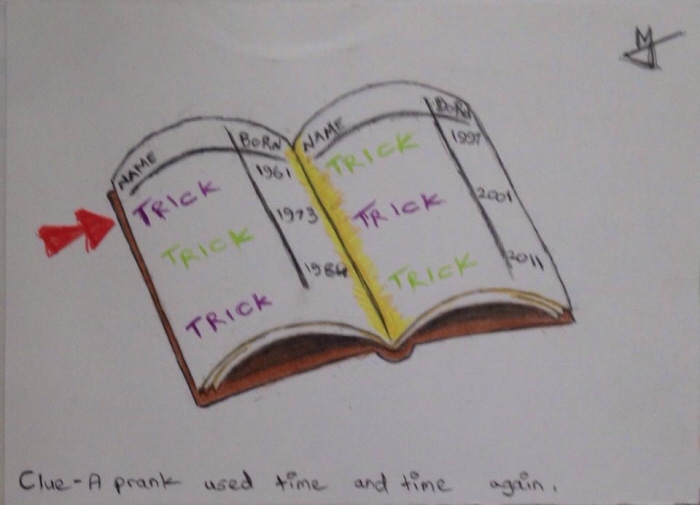 NAME BORN
TRICK 1961
TRICK 1973
TRICK 1984
NAME BORN
TRICK 1997
TRICK 2001
TRICK 2011
Clue - A prank used time and time again.